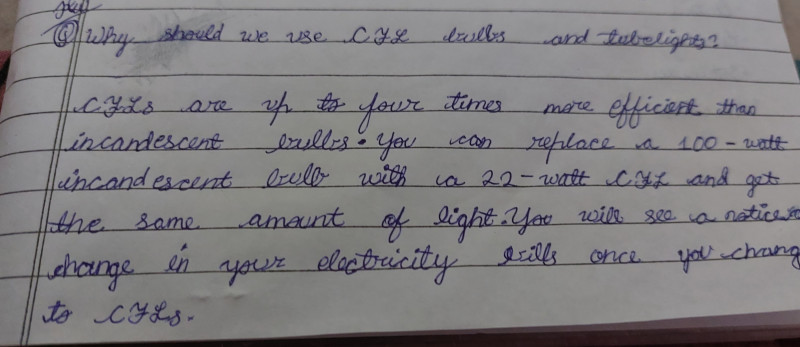 Q Why should we use CFL bulbs and tubelights?
CFLs are up to four times more efficient than
incandescent bulbs. You can replace a 100-watt
incandescent bulb with a 22-watt CFL and get
the same amount of light. You will see a
change in your electricity bills once you chang
to CFLs.